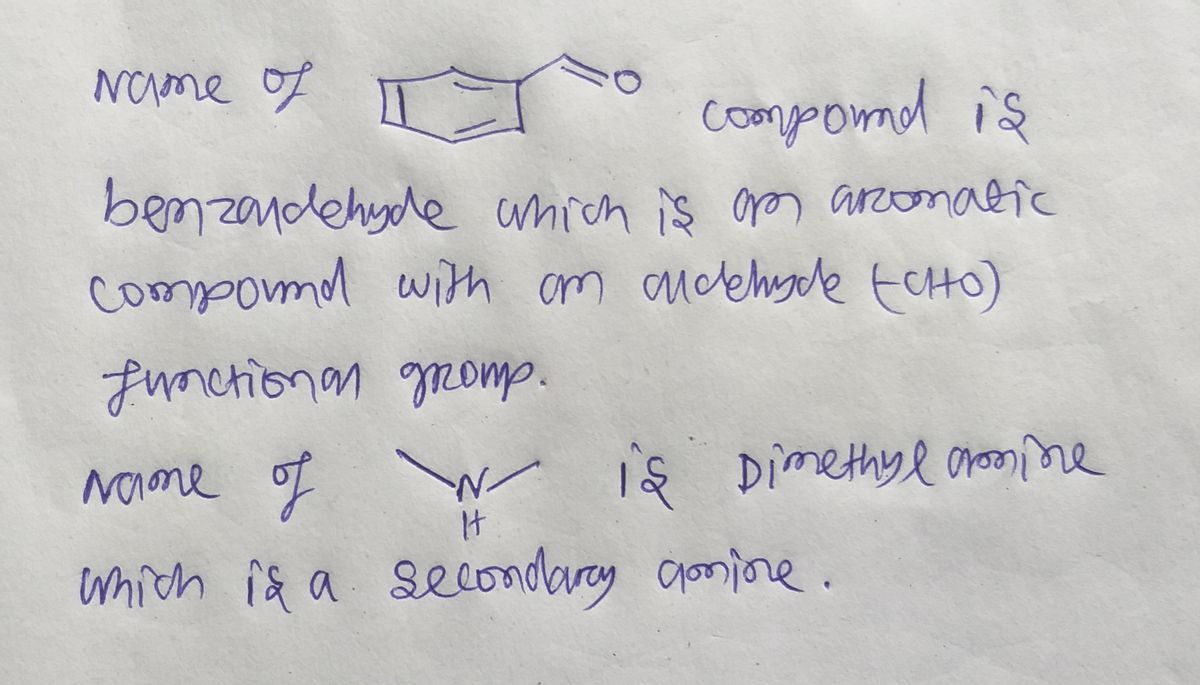 Name of O compound is
benzaldehyde which is an aromatic
compound with an aldehyde (-CHO)
functional group.
Name of N H is Dimethyl amine
which is a secondary amine.